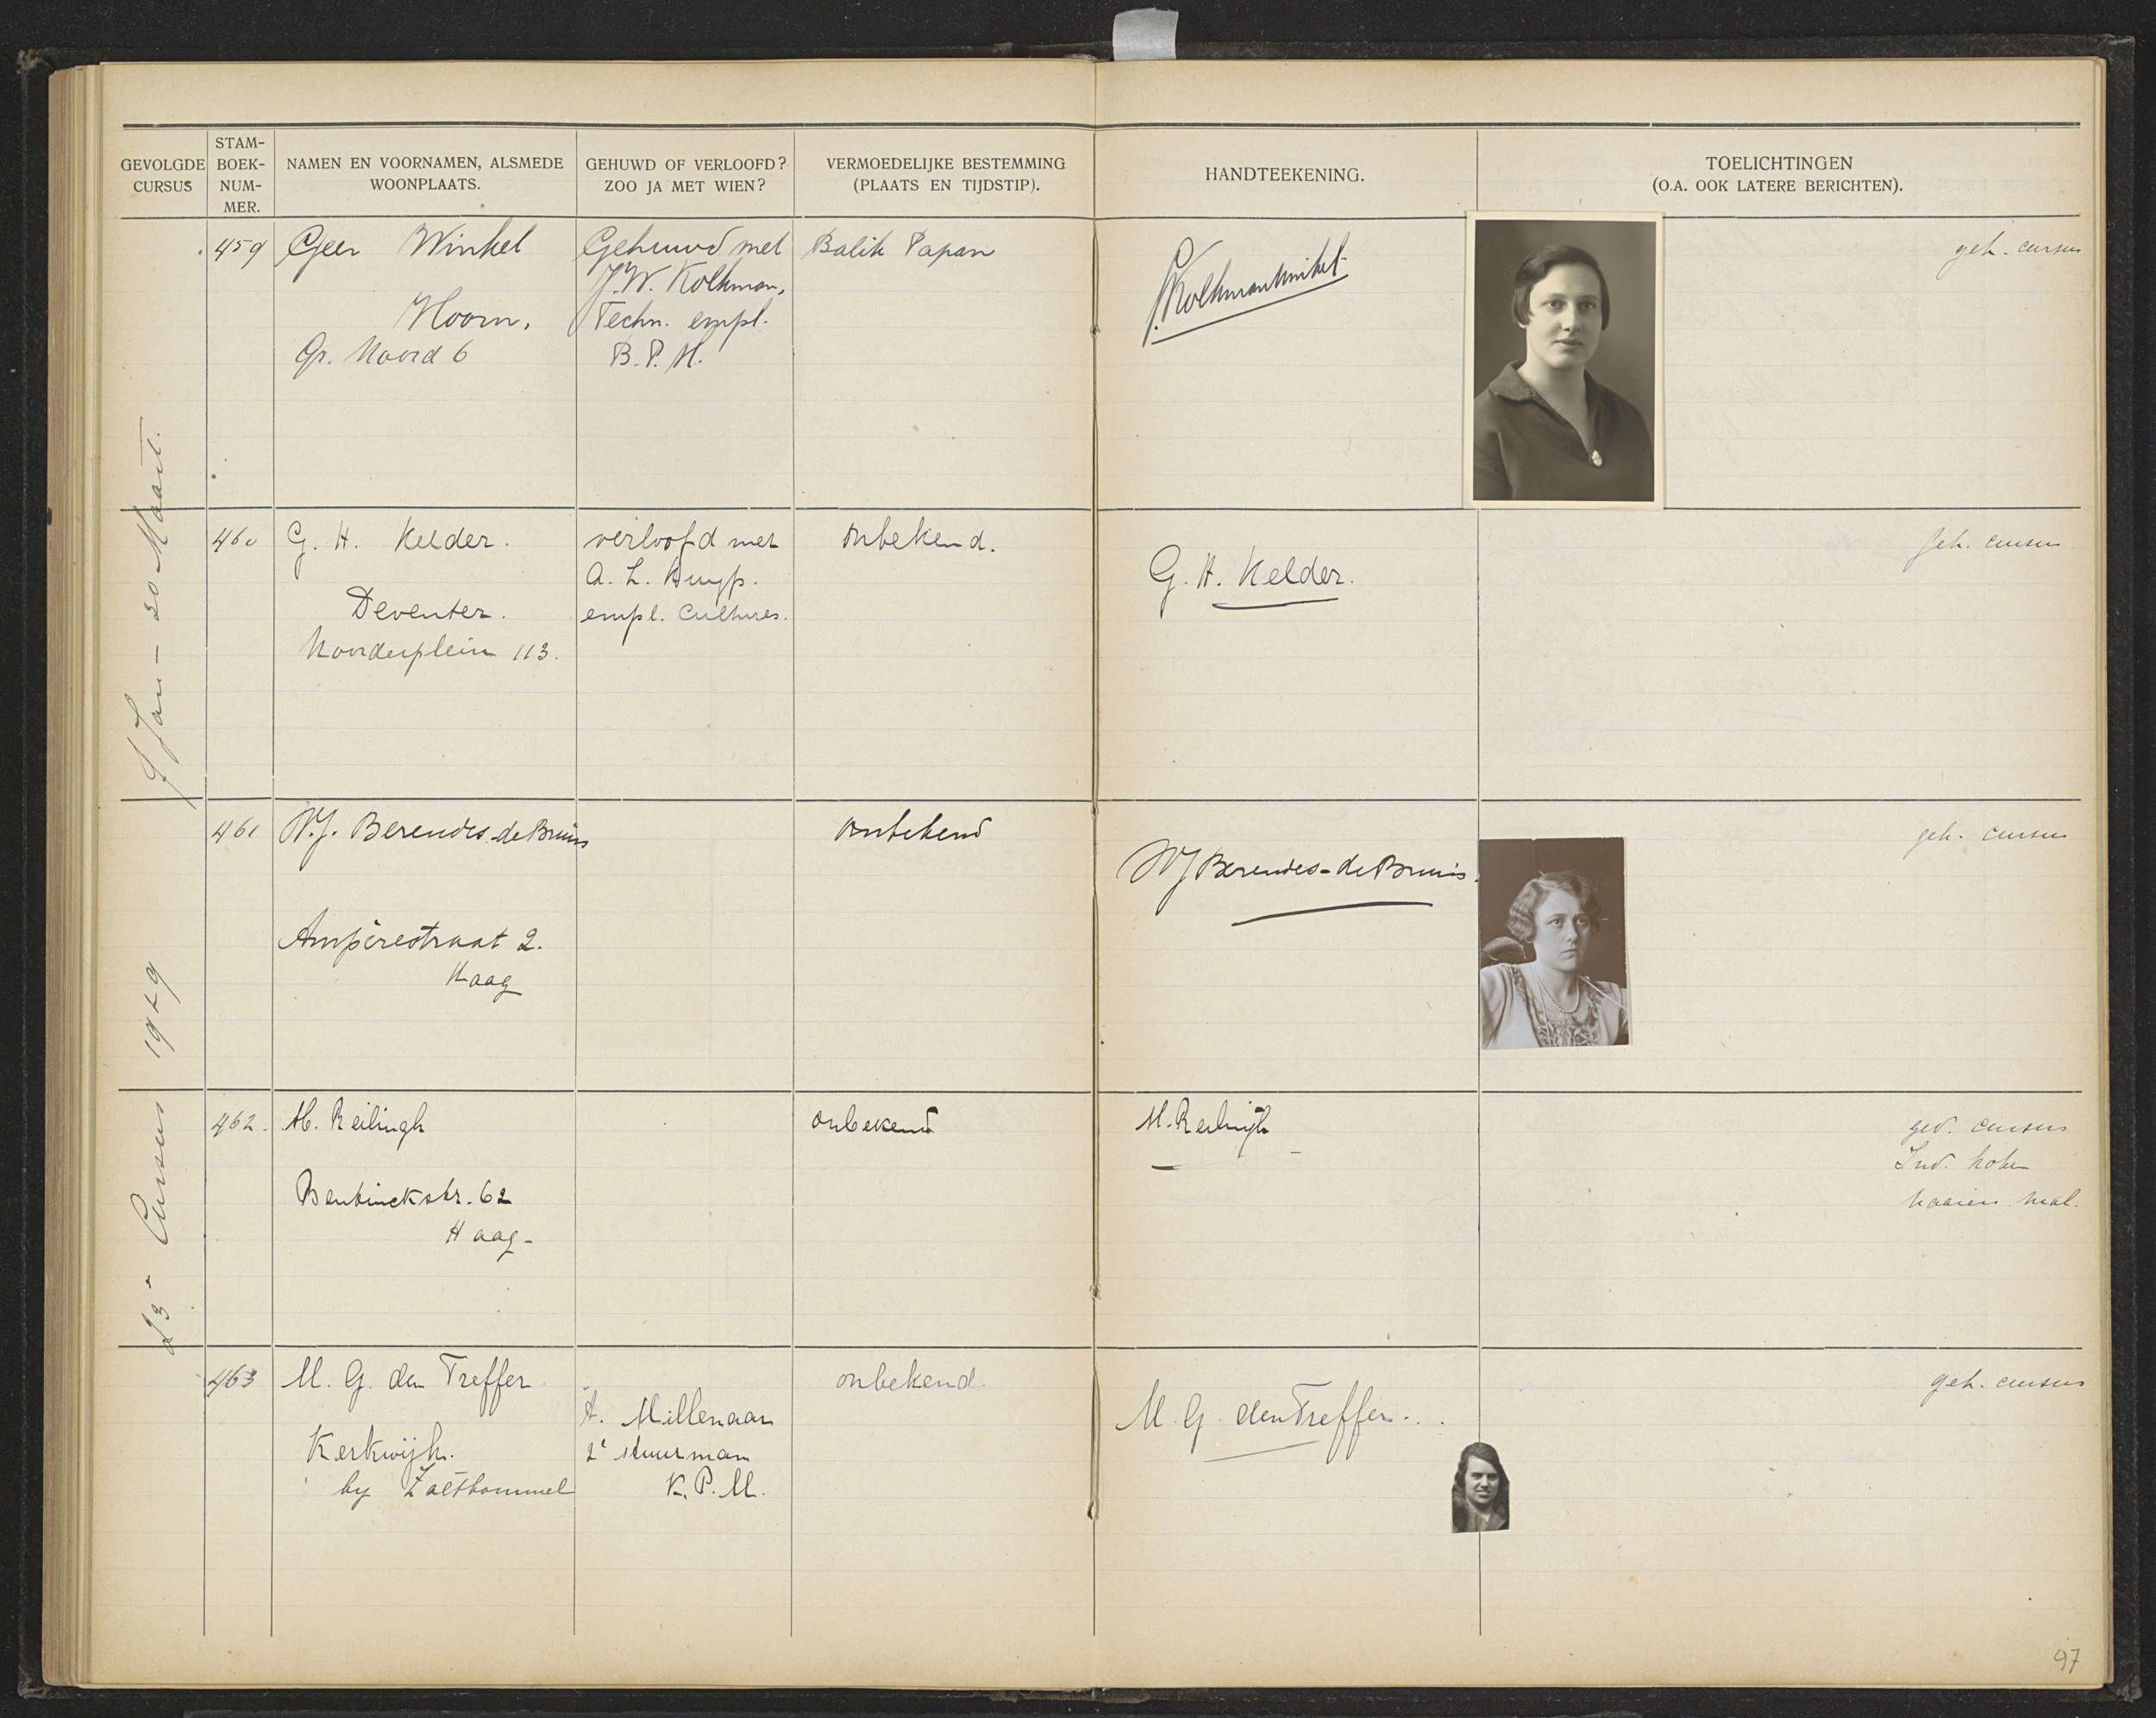 GEVOLGDE
CURSUS
STAM-
BOEK-
NUM-
MER.
NAMEN EN VOORNAMEN, ALSMEDE
WOONPLAATS.
GEHUWD OF VERLOOFD?
ZOO JA MET WIEN?
VERMOEDELIJKE BESTEMMING
(PLAATS EN TIJDSTIP).
HANDTEEKENING.
TOELICHTINGEN
(O.A. OOK LATERE BERICHTEN).
23e Cursus 1929 7 Jan – 20 Maart.
459
Geer Winkel
Hoorn,
Gr. Noord 6
Gehuwd met
J.W. Kolkman,
Techn. empl.
B.P.M.
Balik Papan
Kolkman Winkel
geh. cursus
460
G. H. Kelder.
Deventer.
Noorderplein 113.
verloofd met
A. L. Kuyp.
empl. Cultures.
onbekend.
G. H. Kelder.
geh. cursus
461
W.J. Berendes-de Bruin
Ampèrestraat 2.
Haag
onbekend
WJ Berendes-de Bruin
geh. cursus
462.
M. Reilingh
Bentinckstr. 62
Haag-
onbekend
M. Reilingh
gev. cursus
Ind. koken
naaien
463
M. G. den Treffer
Kerkwijk.
by Zaltbommel
A. Millenaar
2e stuurman
K.P.M.
onbekend.
M. G. den Treffer.
geh. cursus
97